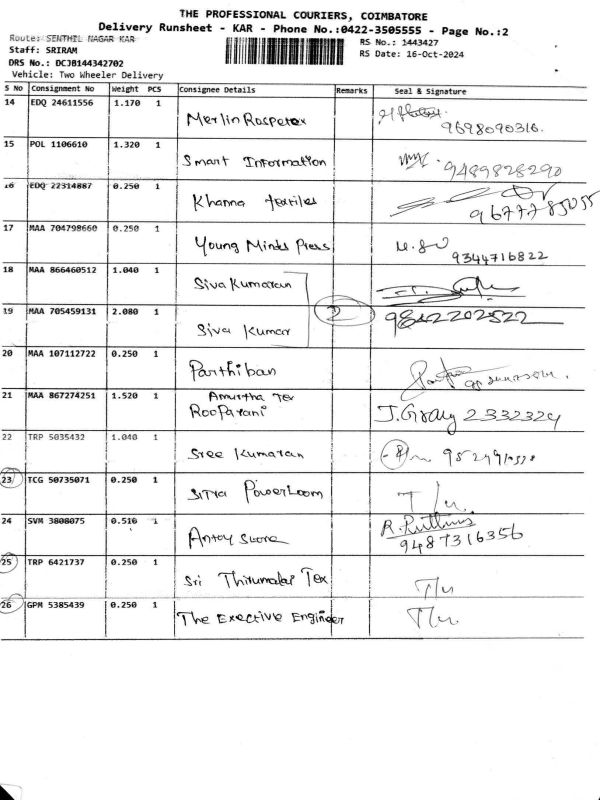 THE PROFESSIONAL COURIERS, COIMBATORE
Delivery Runsheet - KAR - Phone No.:0422-3505555 - Page No.:2
Route: SENTHIL NAGAR KAR
RS No.: 1443427
Staff: SRIRAM
RS Date: 16-Oct-2024
DRS No.: DCJB144342702
Vehicle: Two Wheeler Delivery
S No Consignment No Weight PCS Consignee Details Remarks Seal & Signature
14 EDQ 24611556 1.170 1
Merlin 9698090316.
15 POL 1106610 1.320 1
Smart Information 9489828290
16 EDQ 22314887 0.250 1
Khanna Textiles
17 MAA 704798660 0.250 1
Young Minds 9344716822
18 MAA 866460512 1.040 1
Siva Kumaran
19 MAA 705459131 2.080 1 2 9842202522
Siva Kumar
20 MAA 107112722 0.250 1
Parthiban
21 MAA 867274251 1.520 1 Amurtha Tex
Rooparani 2332324
22 TRP 5035432 1.040 1
Sree Kumaran
23 TCG 50735071 0.250 1
Sitra PowerLoom T/w
24 SVM 3808075 0.510 1
9487316356
25 TRP 6421737 0.250 1
Sri Thirumalai Tex T/w
26 GPM 5385439 0.250 1
The Exective Engineer T/w